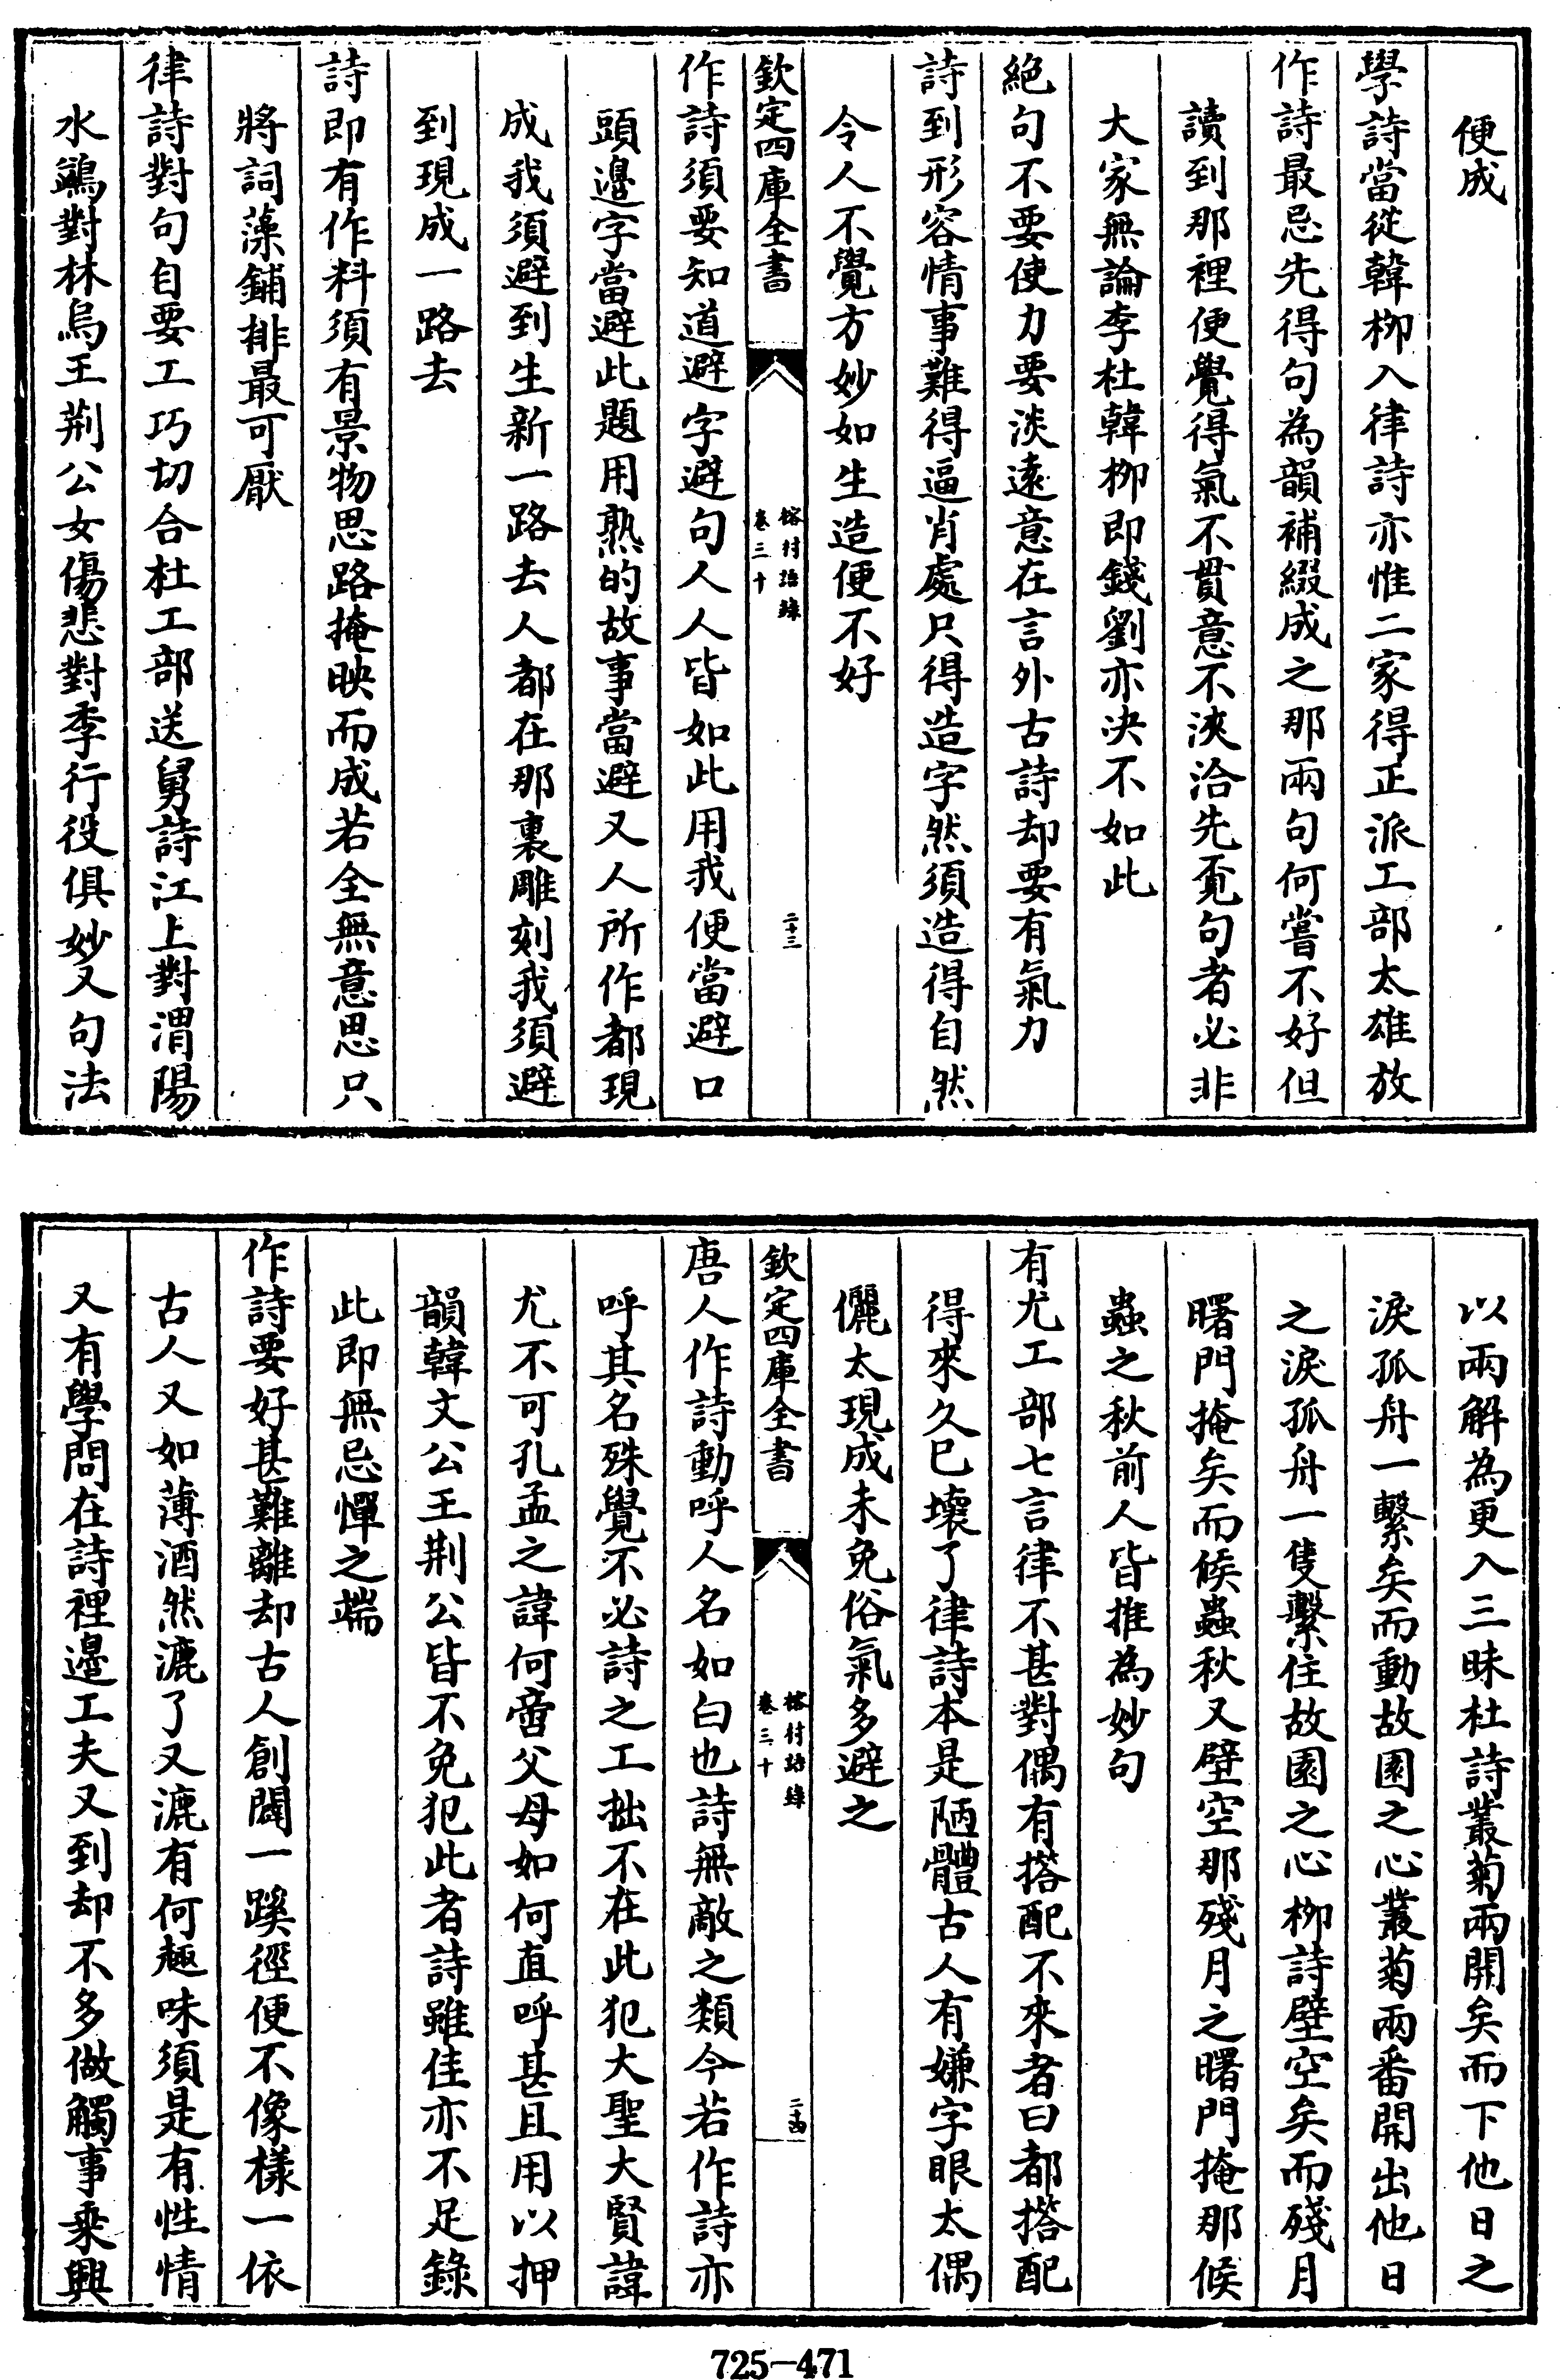 便成
學詩當從韓柳入律詩亦惟二家得正派工部太雄放
作詩最忌先得句為韻補綴成之那兩句何嘗不好但
讀到那裡便覺得氣不貫意不浹洽先覓句者必非
大家無論李杜韓柳即錢劉亦决不如此
絶句不要使力要淡遠意在言外古詩却要有氣力
詩到形容情事難得逼肖處只得造字然須造得自然
令人不覺方妙如生造便不好
欽定四庫全書
榕村語録
卷三十
二十三
作詩須要知道避字避句人人皆如此用我便當避口
頭邊字當避此題用熟的故事當避又人所作都現
成我須避到生新一路去人都在那裏雕刻我須避
到現成一路去
詩即有作料須有景物思路掩映而成若全無意思只
將詞藻鋪排最可厭
律詩對句自要工巧切合杜工部送舅詩江上對渭陽
水鷁對林烏王荆公女傷悲對季行役俱妙又句法
以兩解為更入三昧杜詩叢菊兩開矣而下他日之
淚孤舟一繫矣而動故園之心叢菊兩番開出他日
之淚孤舟一隻繫住故園之心柳詩壁空矣而殘月
曙門掩矣而候蟲秋又壁空那殘月之曙門掩那候
蟲之秋前人皆推為妙句
有尤工部七言律不甚對偶有搭配不來者曰都搭配
得來久已壞了律詩本是陋體古人有嫌字眼太偶
儷太現成未免俗氣多避之
欽定四庫全書
榕村語録
卷三十
二十四
唐人作詩動呼人名如白也詩無敵之類今若作詩亦
呼其名殊覺不必詩之工拙不在此犯大聖大賢諱
尤不可孔孟之諱何啻父母如何直呼甚且用以押
韻韓文公王荆公皆不免犯此者詩雖佳亦不足錄
此即無忌憚之端
作詩要好甚難離却古人創闢一蹊徑便不像樣一依
古人又如薄酒然漉了又漉有何趣味須是有性情
又有學問在詩裡邊工夫又到却不多做觸事乘興
725-471